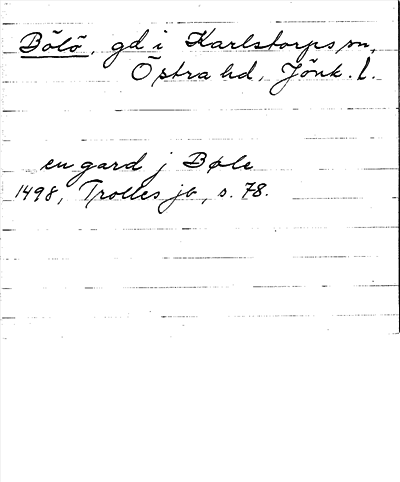 Bölö, gd i Karlstorps sn,
Östra hd, Jönk. l.
en gard j Bøle
1498, Trolles jb, s. 78.